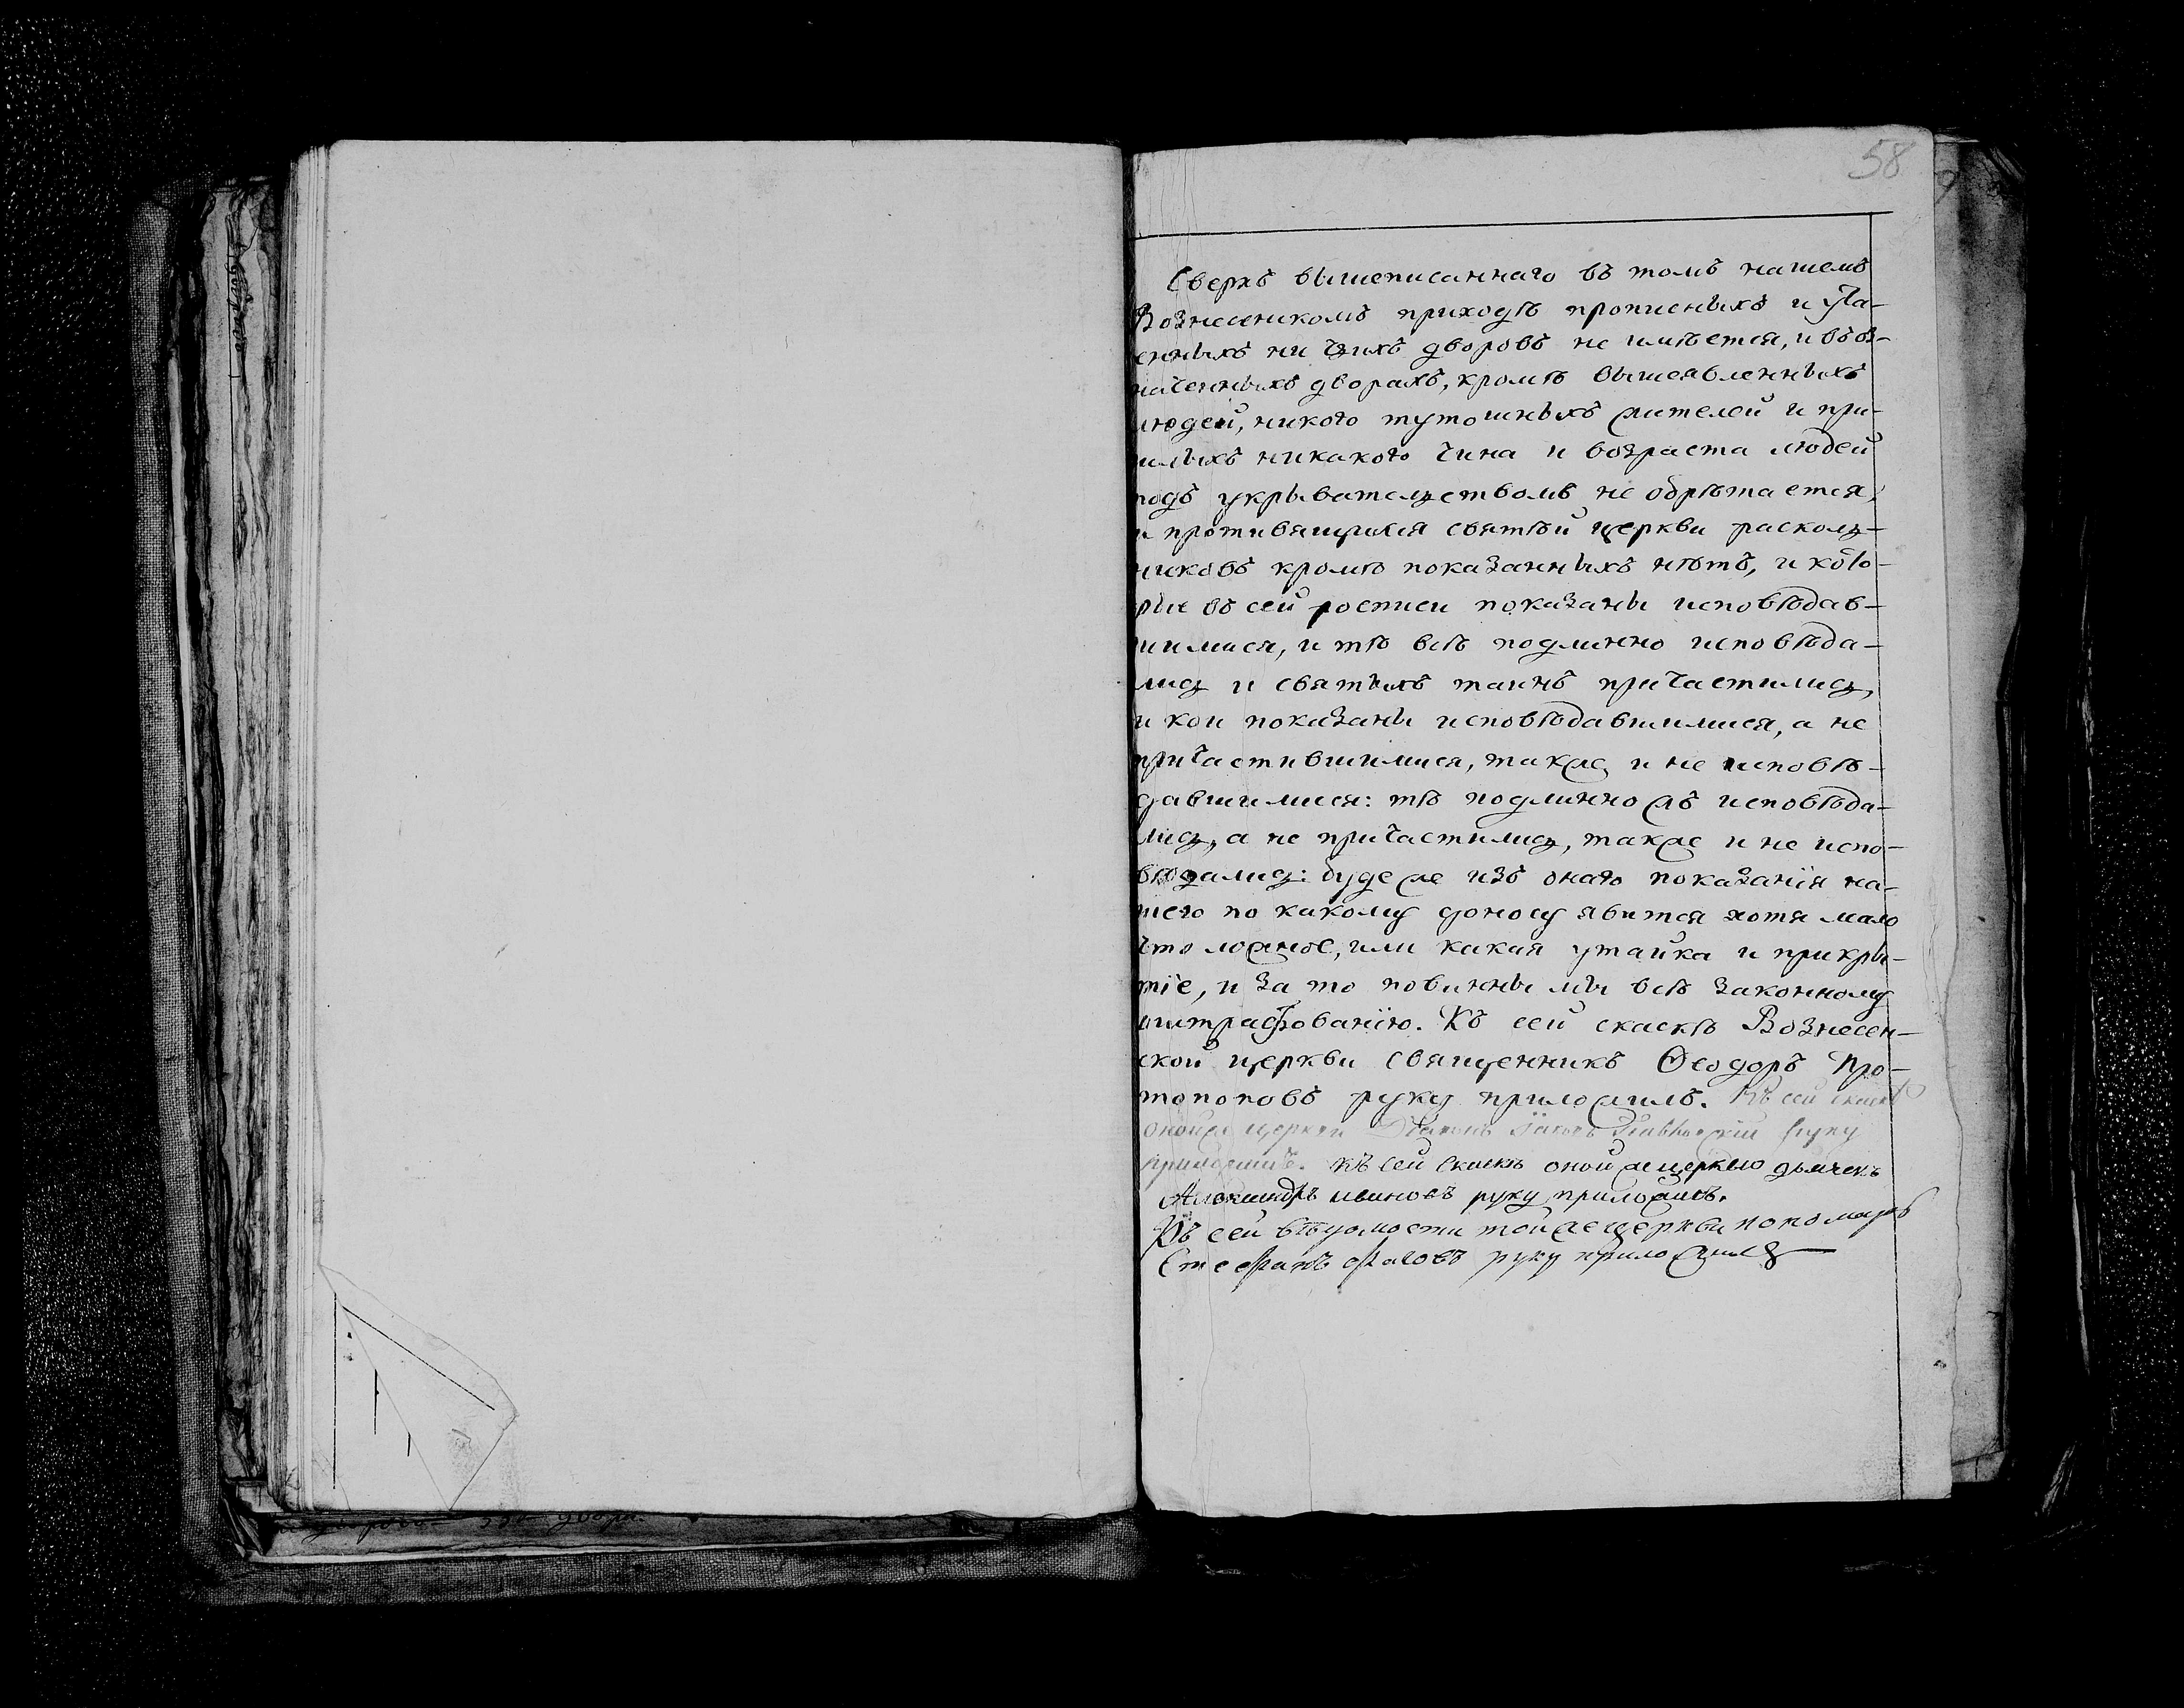 58
Сверхъ вышеписаннаго въ томъ нашемъ
Вознесенскомъ приходѣ прописныхъ и ута-
енныхъ ни чьихъ дворовъ не имѣется, и въ оз-
наченныхъ дворахъ, кромѣ вышеявленныхъ
людей, никого тутошныхъ жителей и при-
шлыхъ никакого чина и возраста людей
подъ укрывательствомъ не обрѣтается,
и противящихся святѣй церкви расколь-
никовъ кромѣ показанныхъ нѣтъ, и кото-
рые въ сей росписи показаны исповѣдав-
шимися, и тѣ всѣ подлинно исповѣда-
лись и святыхъ таинъ причастились,
и кои показаны исповѣдавшимися, а не
причастившимися, также и не исповѣ-
давшимися: тѣ подлинно жъ исповѣда-
лись, а не причастились, также и не испо-
вѣдались: буде же изъ онаго показанїя на-
шего по какому доносу явится хотя мало
что ложное, или какая утайка и прикры-
тїе, и за то повинны мы всѣ законному
штрафованїю. Къ сей скаскѣ Вознесен-
ской церкви священникъ Ѳеодоръ Про-
топоповъ руку приложилъ. Къ сей скаскѣ
оной же церкви Дїаконъ руку
приложилъ. Къ сей скаскѣ оной же церкви дьячекъ
Александръ ивановъ руку приложилъ.
Къ сей вѣдомости той же церкви пономарь
Стефанъ руку приложилъ